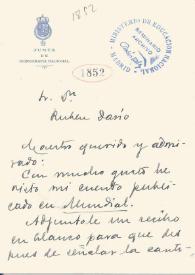 1852
JUNTA
DE
ICONOGRAFÍA NACIONAL
MINISTERIO DE EDUCACION NACIONAL
SEMINARIO
ARCHIVO
1852
Sr. Dn
Rubén Darío
Maestro querido y admi-
rado:
Con mucho gusto he
visto mi cuento publi-
cado en Mundial.
Adjuntole un recibo
en blanco para que des-
pues de señalar la canti-